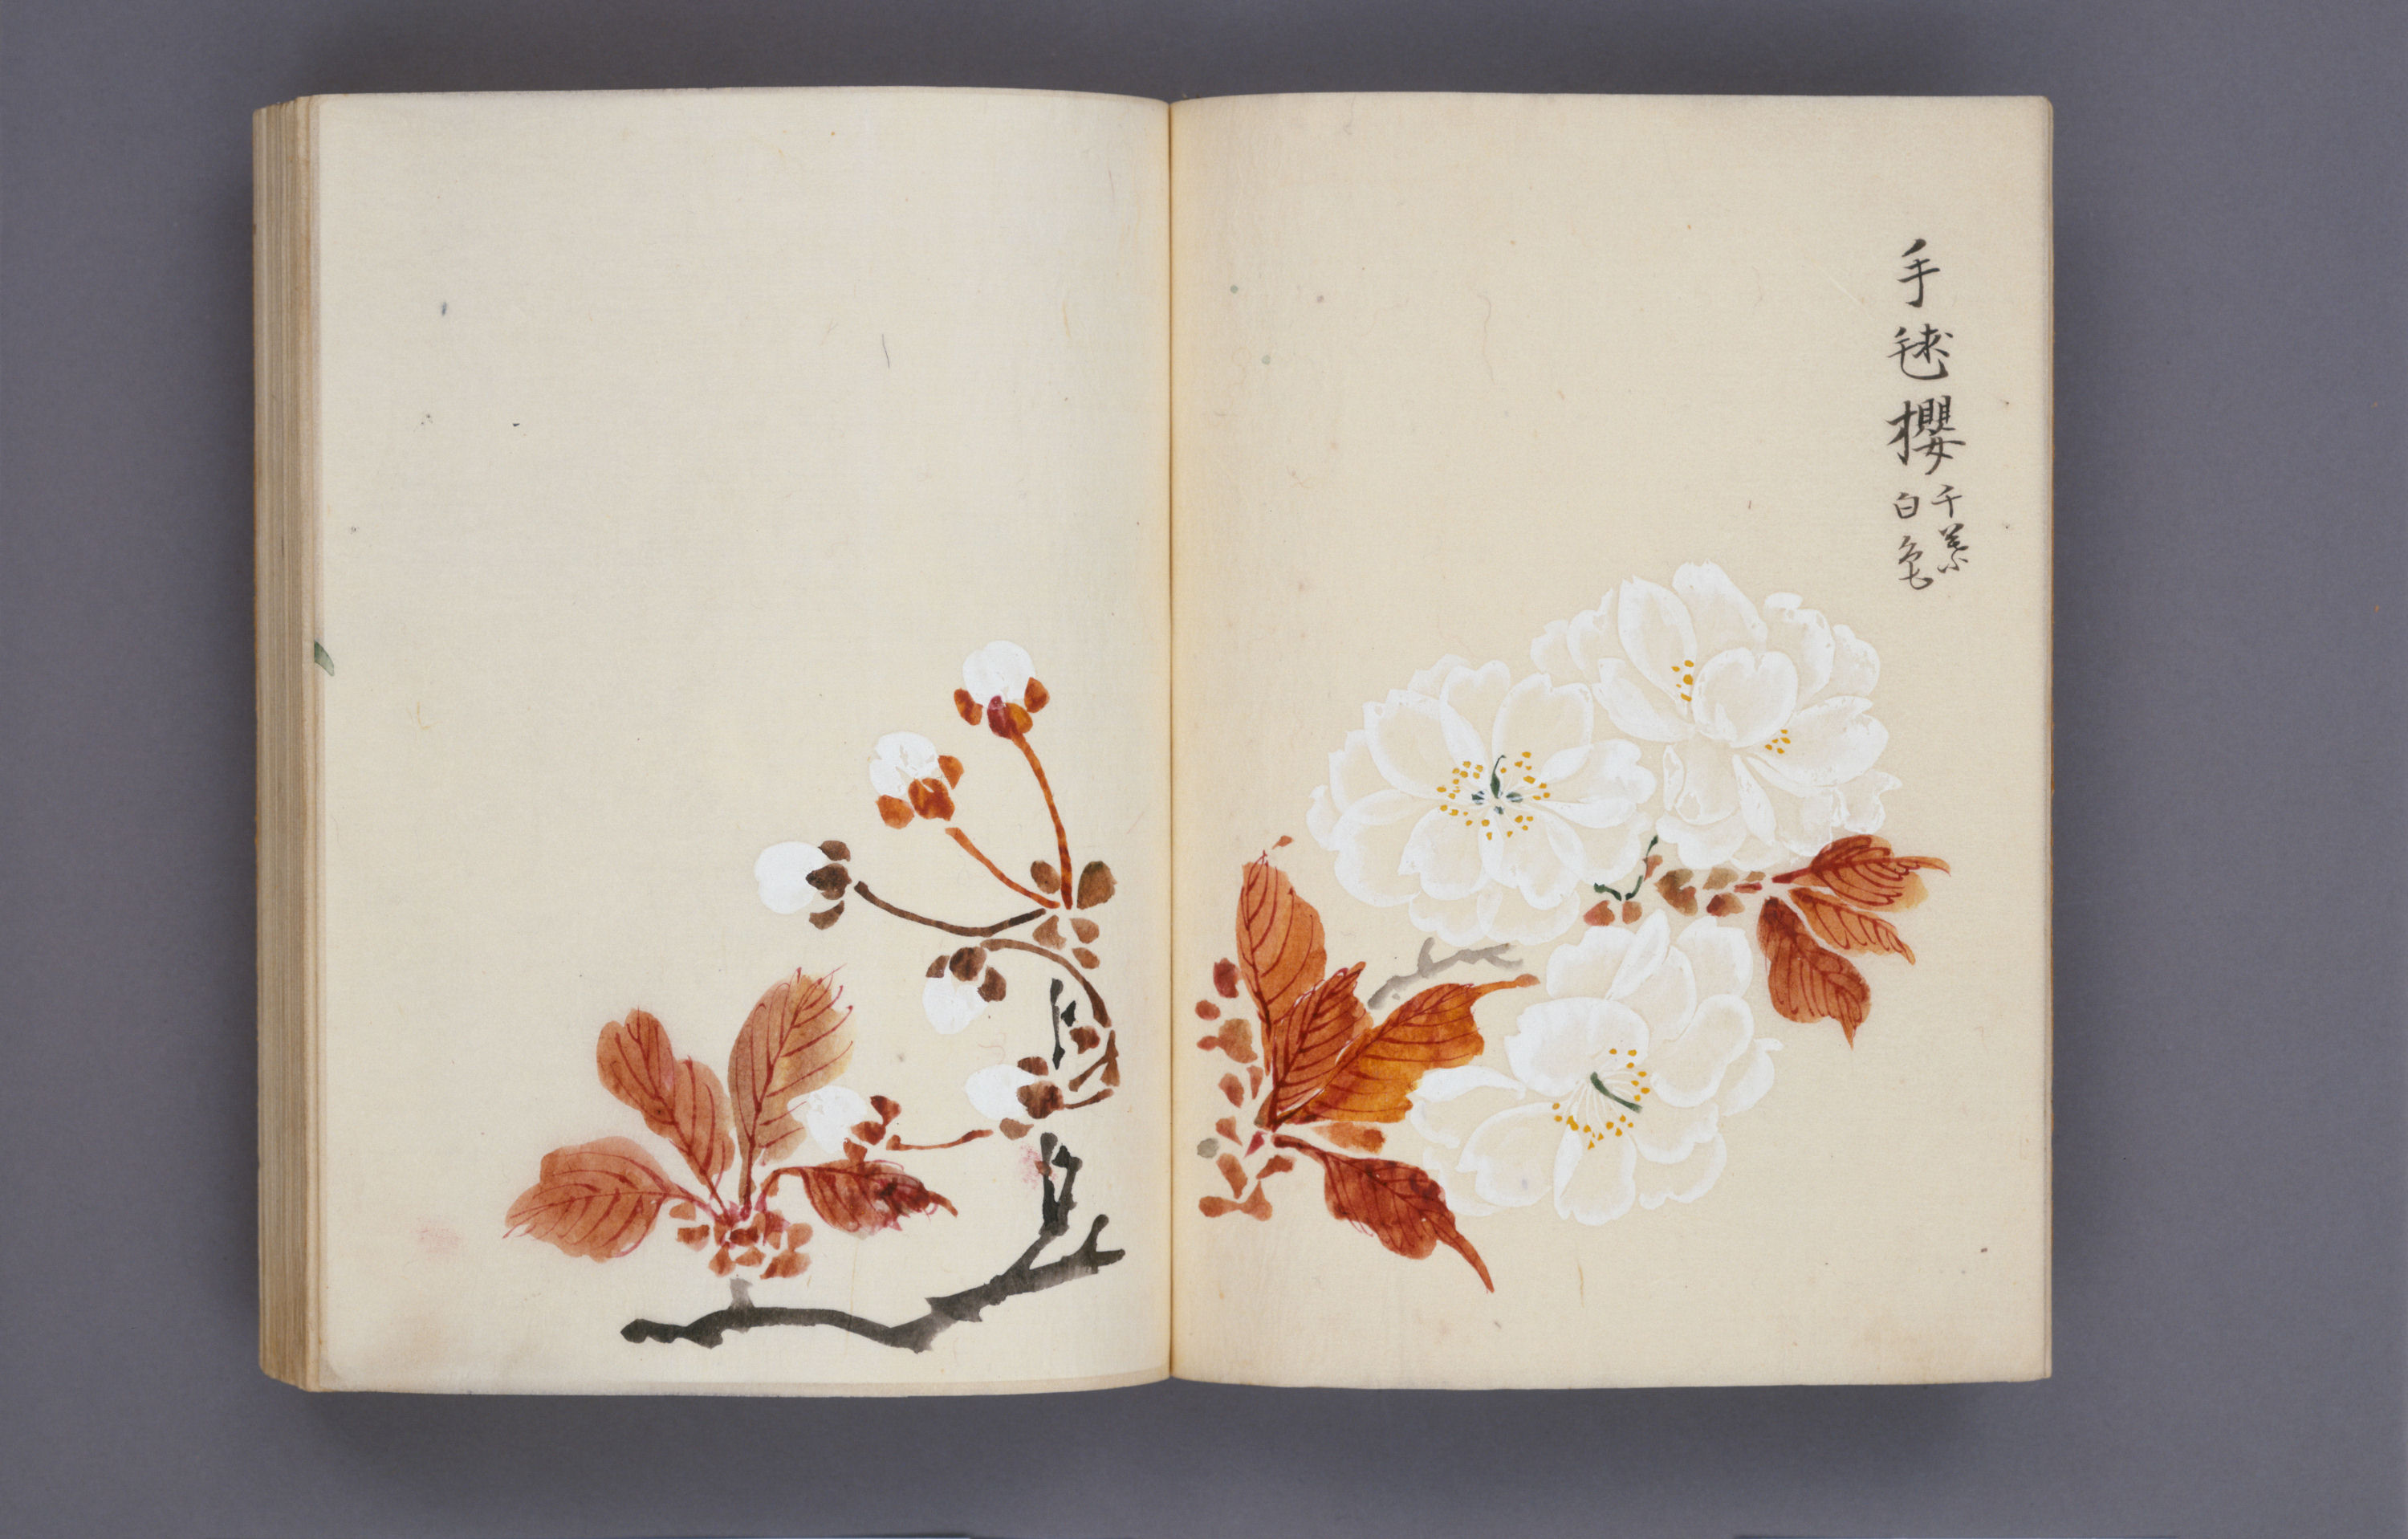 手毬櫻
千葉
白色